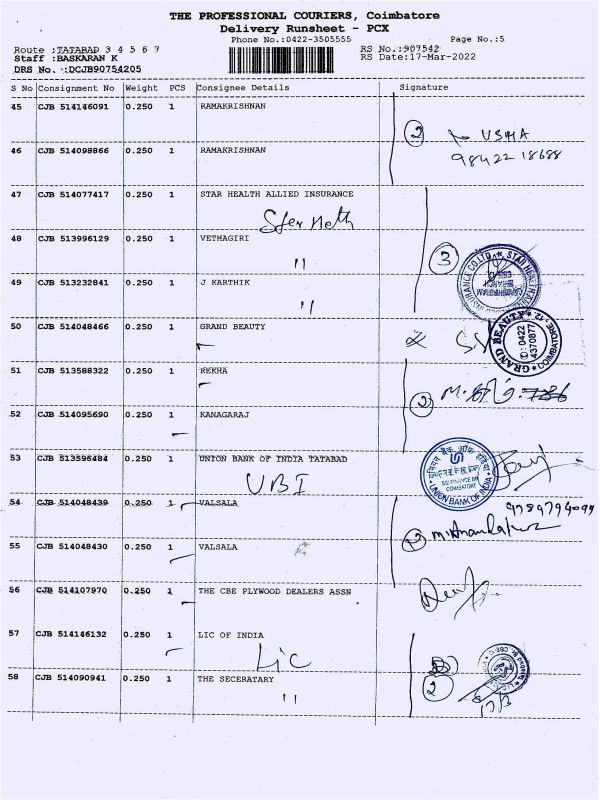 THE PROFESSIONAL COURIERS, Coimbatore
Delivery Runsheet - PCX
Phone No.:0422-3505555 Page No.:5
Route :TATABAD 3 4 5 6 7 RS No.:907542
Staff :BASKARAN K RS Date:17-Mar-2022
DRS No. :DCJB90754205
S No Consignment No Weight PCS Consignee Details Signature
45 CJB 514146091 0.250 1 RAMAKRISHNAN
2 USHA
46 CJB 514098866 0.250 1 RAMAKRISHNAN 9842218688
47 CJB 514077417 0.250 1 STAR HEALTH ALLIED INSURANCE
48 CJB 513996129 0.250 1 VETHAGIRI
" 3
49 CJB 513232841 0.250 1 J KARTHIK
"
50 CJB 514048466 0.250 1 GRAND BEAUTY
GRAND BEAUTY
COIMBATORE - 12.
: 0422
4370877
51 CJB 513588322 0.250 1 REKHA
2
52 CJB 514095690 0.250 1 KANAGARAJ
53 CJB 513596484 0.250 1 UNION BANK OF INDIA TATABAD
UBI
UNION BANK OF INDIA
COIMBATORE
54 CJB 514048439 0.250 1 VALSALA 9789794099
2
55 CJB 514048430 0.250 1 VALSALA
56 CJB 514107970 0.250 1 THE CBE PLYWOOD DEALERS ASSN
57 CJB 514146132 0.250 1 LIC OF INDIA
LIC
58 CJB 514090941 0.250 1 THE SECERATARY 2
" 17/3